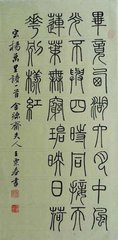 畢竟西湖六月中風
光不與四時同接天
蓮葉無窮碧映日荷
華別樣紅
宋楊萬里詩一首書